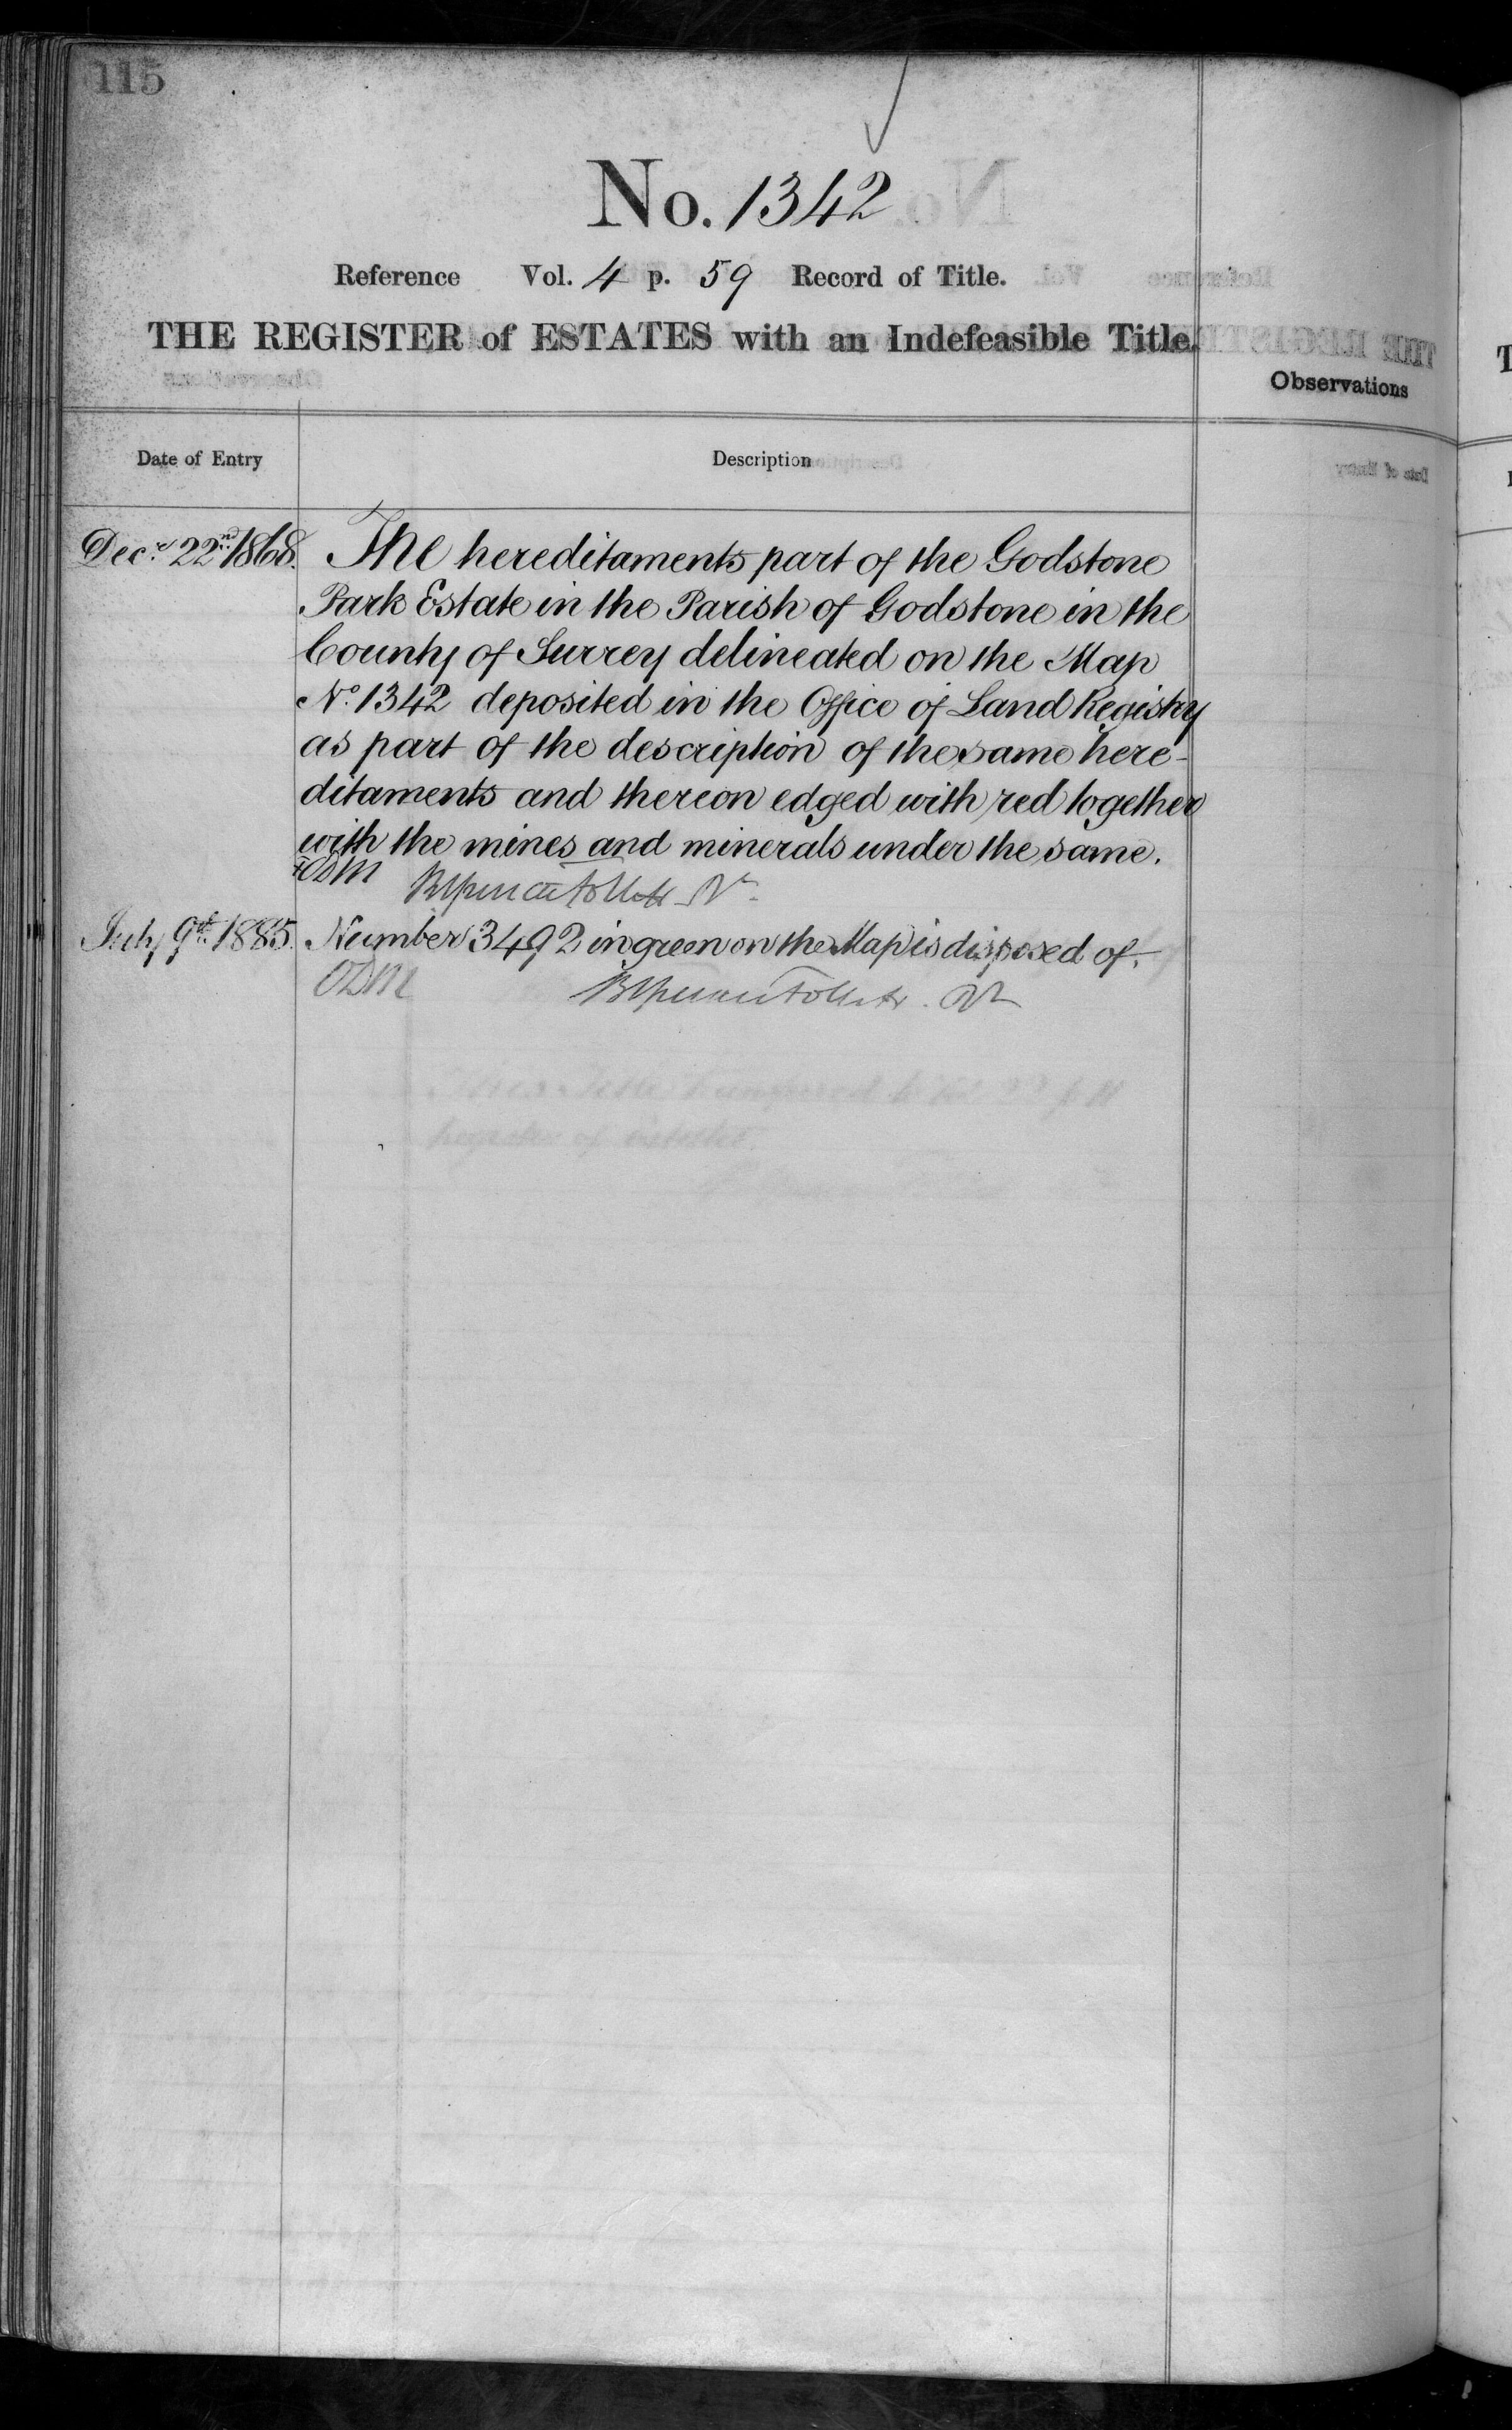 115
No. 1342
Reference Vol. 4 p. 59 Record of Title.
THE REGISTER of ESTATES with an Indefeasible Title.
Observations
Date of Entry Description
Decr. 22nd 1868. The hereditaments part of the Godstone
Park Estate in the Parish of Godstone in the
County of Surrey delineated on the Map
No. 1342 deposited in the Office of Land Registry
as part of the description of the same here-
ditaments and thereon edged with red together
with the mines and minerals under the same.
July 9th 1885. Number 3492 in green on the Map is disposed of.
ODM